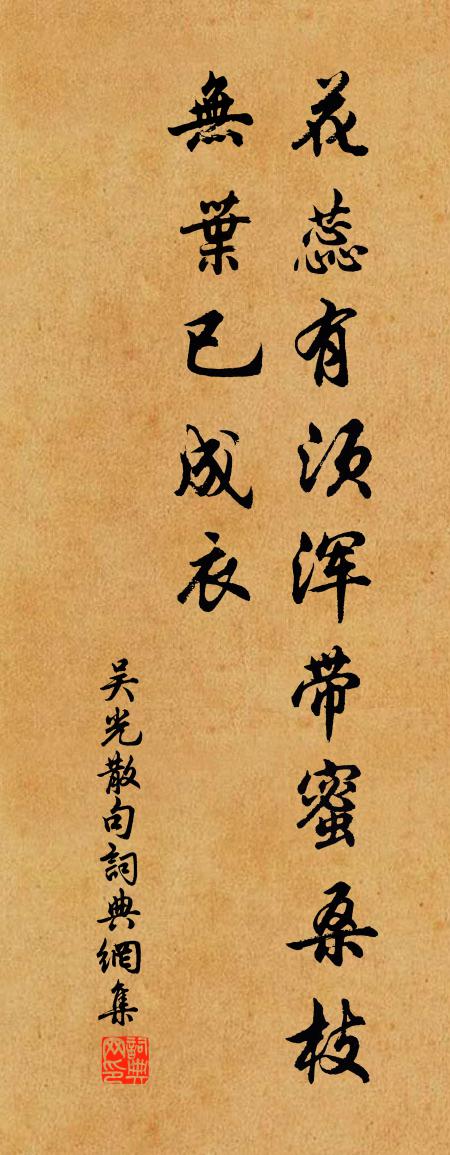 花蕊有须浑带蜜桑枝
無葉已成衣
吴光散句詞典網集
詞典网印